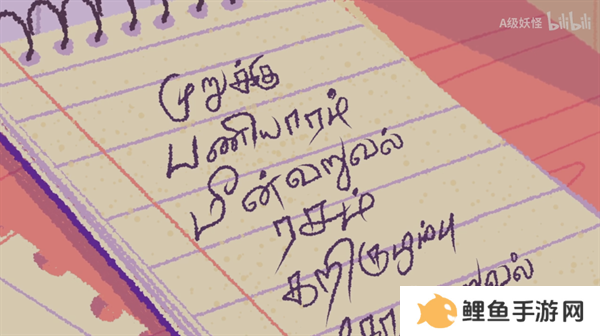 A级妖怪 bilibili
முறுக்கு
பணியாரம்
மீன்வறுவல்
ரசம்
கறிகுழம்பு
鲤鱼手游网